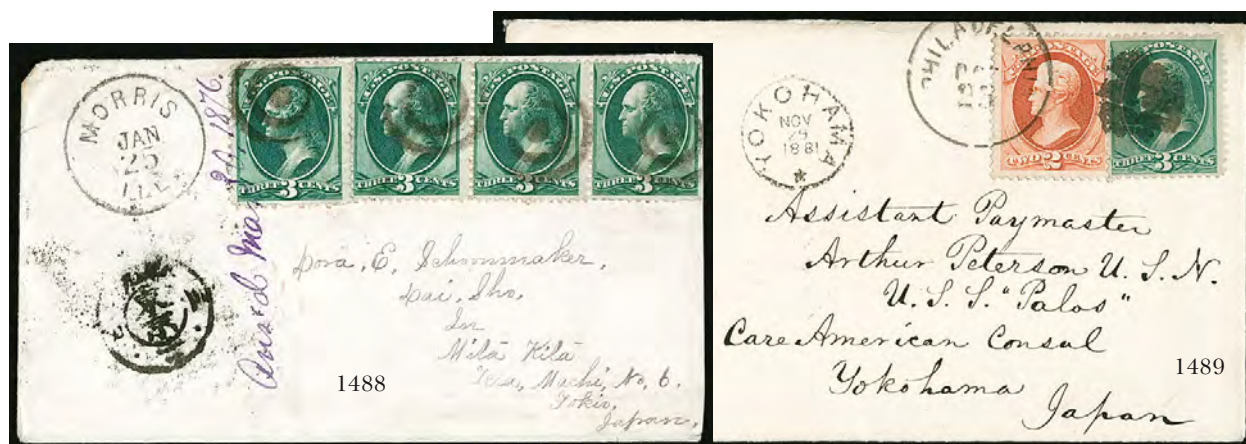 MORRIS
JAN
25
ILL.
1876.
U.S. POSTAGE
THREE 3 CENTS
U.S. POSTAGE
THREE 3 CENTS
U.S. POSTAGE
THREE 3 CENTS
U.S. POSTAGE
THREE 3 CENTS
Dora. E. Schoonmaker,
Dai. Sho.
In
Mita Kita
Tera, Machi, No, 6.
Tokio,
Japan.
1488
PHILADELPHI
YOKOHAMA
NOV
29
1881
U.S. POSTAGE
TWO 2 CENTS
U.S. POSTAGE
THREE 3 CENTS
Assistant Paymaster
Arthur Peterson U. S. N.
U. S. S. "Palos"
Care American Consul
Yokohama
Japan
1489